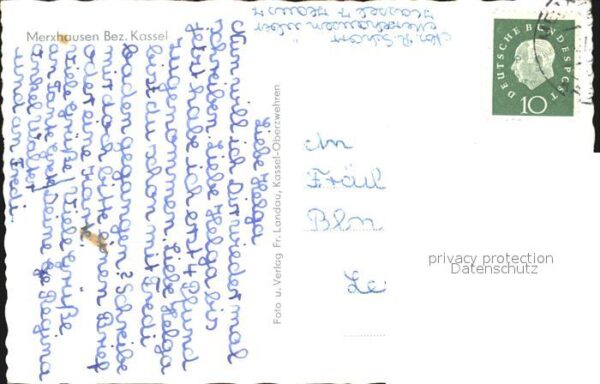 Merxhausen Bez. Kassel
Kassel 7
DEUTSCHE BUNDESPOST
10
Liebe Helga
Nun will ich Dir wieder mal
schreiben. Liebe Helga bis
jetzt habe ich erst 4 Pfund
zugenommen. Liebe Helga
bist du schon mit Fredi
baden gegangen? Schreibe
mir doch bitte einen Brief
oder eine Karte.
Viele Grüße. Viele Grüße
an Tante Gretl Deine Regina
Onkel Walter
und an Fredi.
Foto u. Verlag Fr. Landau, Kassel-Oberzwehren
An
Fräul
Bln
privacy protection
Datenschutz
Le